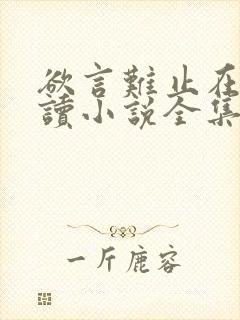 欲言難止在
讀小說全集
一斤鹿容